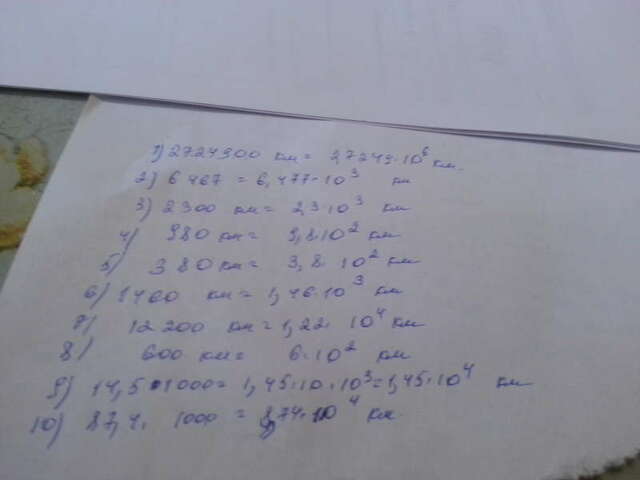 1) 2724900 км = 2,7249·10⁶ км.
2) 6467 = 6,477·10³ км
3) 2300 км = 2,3·10³ км
4) 980 км = 9,8·10² км
5) 380 км = 3,8·10² км
6) 1460 км = 1,46·10³ км
7) 12200 км = 1,22·10⁴ км
8) 600 км = 6·10² км
9) 14,5·1000 = 1,45·10·10³ = 1,45·10⁴ км
10) 87,4·1000 = 8,74·10⁴ км.